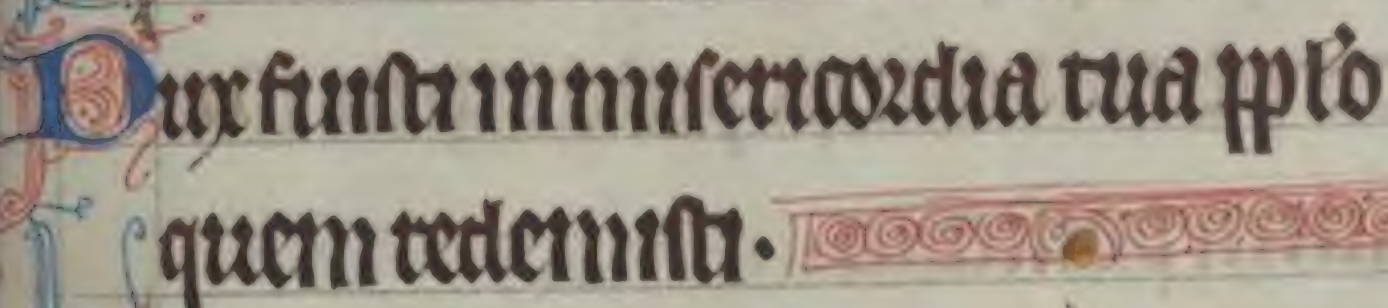 Dux fuisti in misericordia tua pplo
quem redemisti.